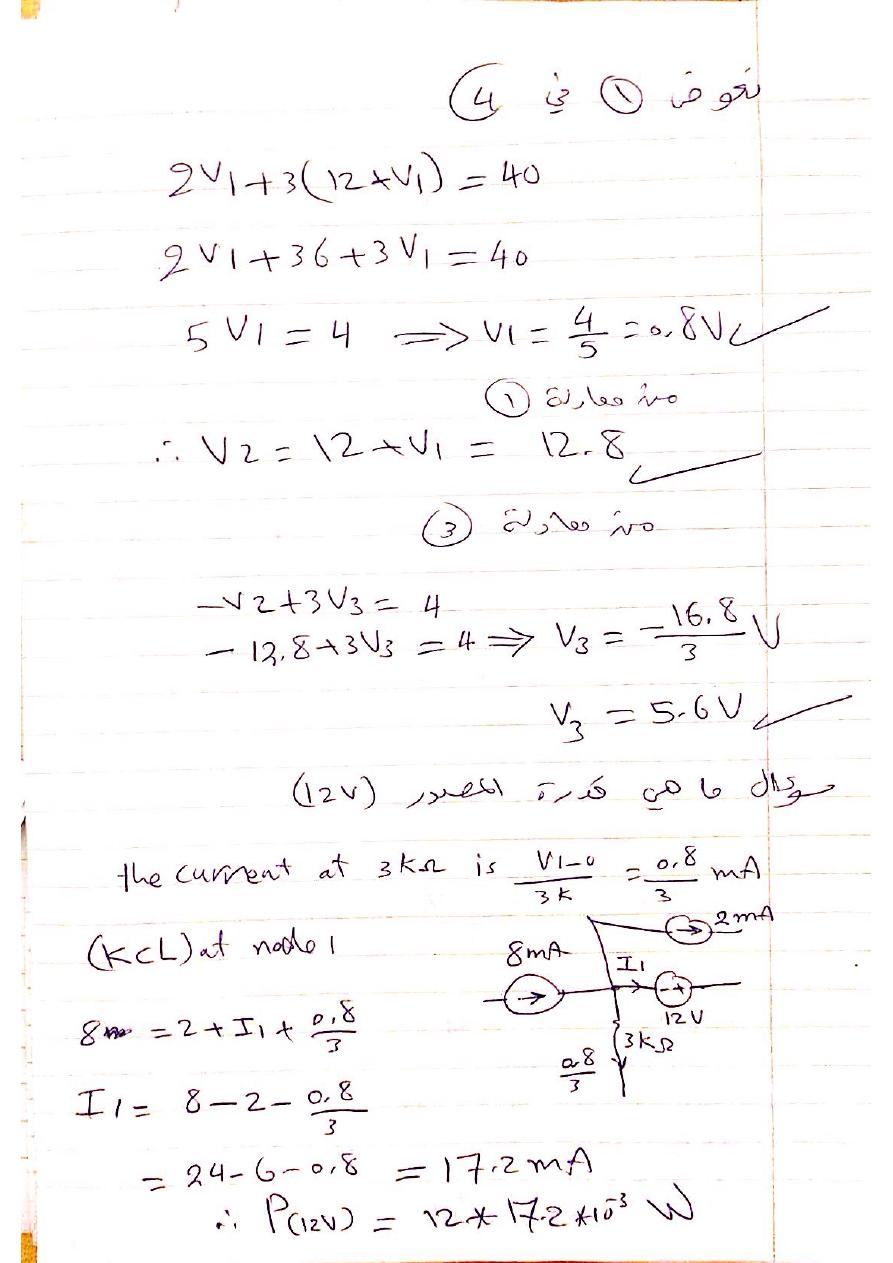 نعوض ① في ④
2V1+3(12+V1) = 40
2V1+36+3V1 = 40
5V1 = 4 ⟹ V1 = 4/5 = 0.8V ✓
من معادلة ①
∴ V2 = 12+V1 = 12.8 ✓
من معادلة ③
-V2+3V3 = 4
-12.8+3V3 = 4 ⟹ V3 = -16.8/3 V
V3 = 5.6V ✓
سؤال ما هي قدرة المصدر (12V)
the current at 3kΩ is V1-0/3k = 0.8/3 mA
(KCL) at node 1
2mA
8mA
I1
12V
3kΩ
0.8/3
8 = 2+I1+ 0.8/3
I1 = 8-2- 0.8/3
= 24-6-0.8 = 17.2mA
∴ P(12V) = 12*17.2*10⁻³ W